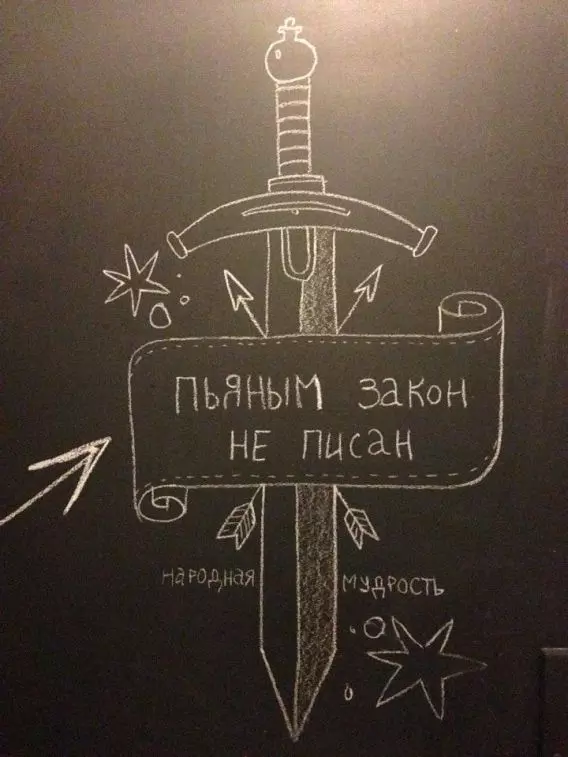 пьяным закон
не писан
народная мудрость